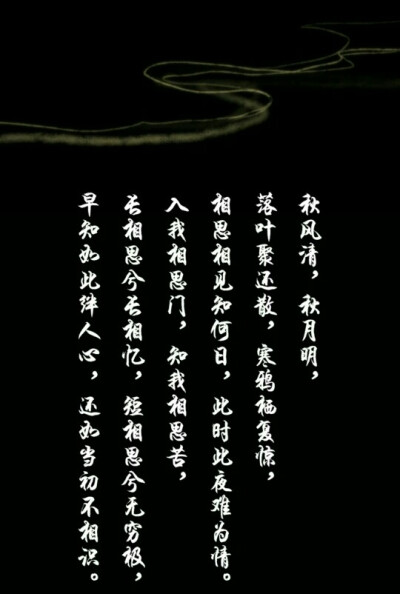 秋风清，秋月明，
落叶聚还散，寒鸦栖复惊，
相思相见知何日，此时此夜难为情。
入我相思门，知我相思苦，
长相思兮长相忆，短相思兮无穷极，
早知如此绊人心，还如当初不相识。